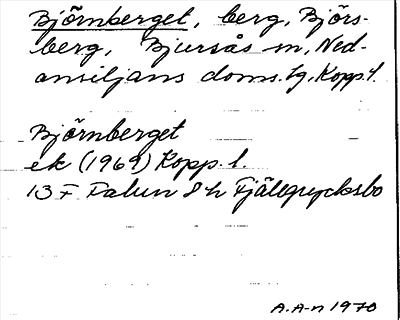 Björnberget, berg, Björs-
berg, Bjursås sn, Ned-
ansiljans doms. tg, Kopp. l.
Björnberget
ek (1969) Kopp. l.
13 F Falun 8 h Fjällgrycksbo
A.A-n 1970